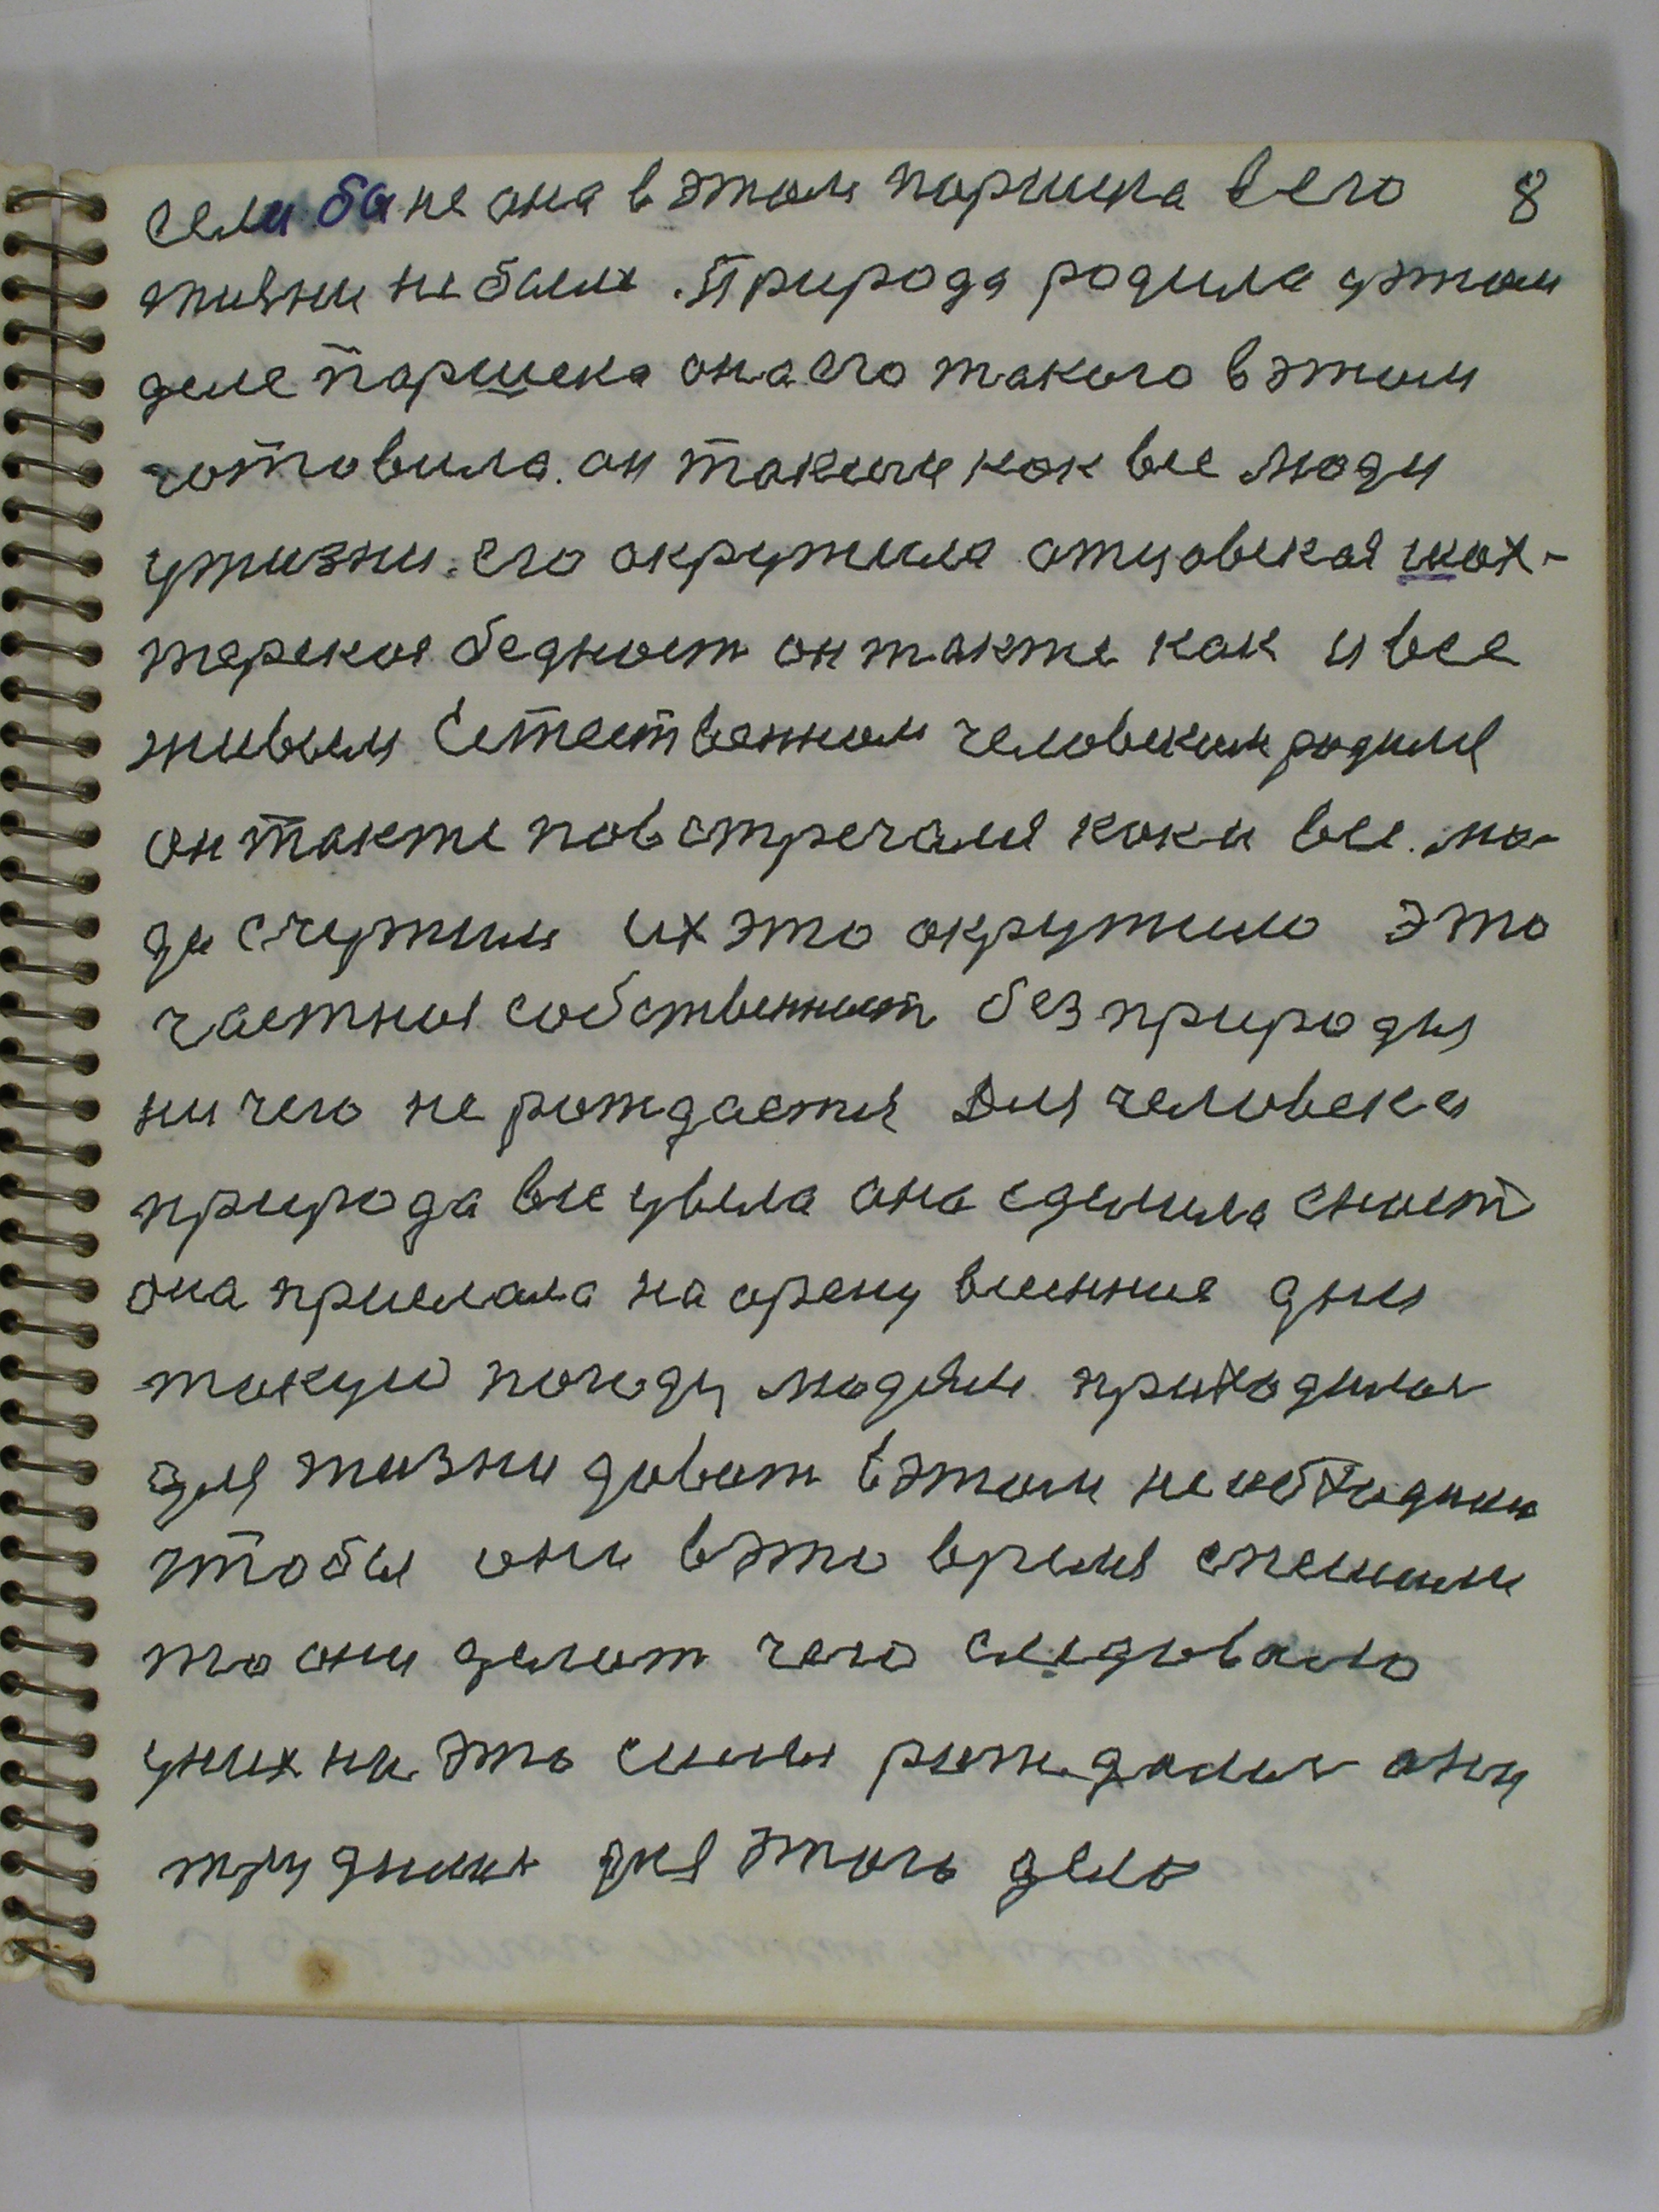 если бы не она в этом паршека в его 8
жизни не была. Природа родила у этом
деле паршека она его такого в этом
готовила. он такими как все люди
у жизни. его окружила отцовская шах-
терская бедност он также как и все
живым естественном человеком родился
он также повстречался как и все лю-
ди с чужим их это окружило это
частная собственност без природы
ничего не рождается Для человека
природа все у вела она сделала
она прислала на арену весенние дни
такую погоду людям приходилос
для жизни дават в этом необходимо
чтобы они в это время спешили
то они делают чего следовало
у них на это силы рождалис они
трудилис для этого дела